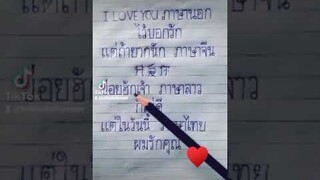 I LOVE YOU ภาษานอก
ไว้บอกรัก
แต่ถ้ายากนัก ภาษาจีน
ข่อยฮักเจ้า ภาษาลาว
แต่ในวันนี้
ผมรักคุณ
TikTok